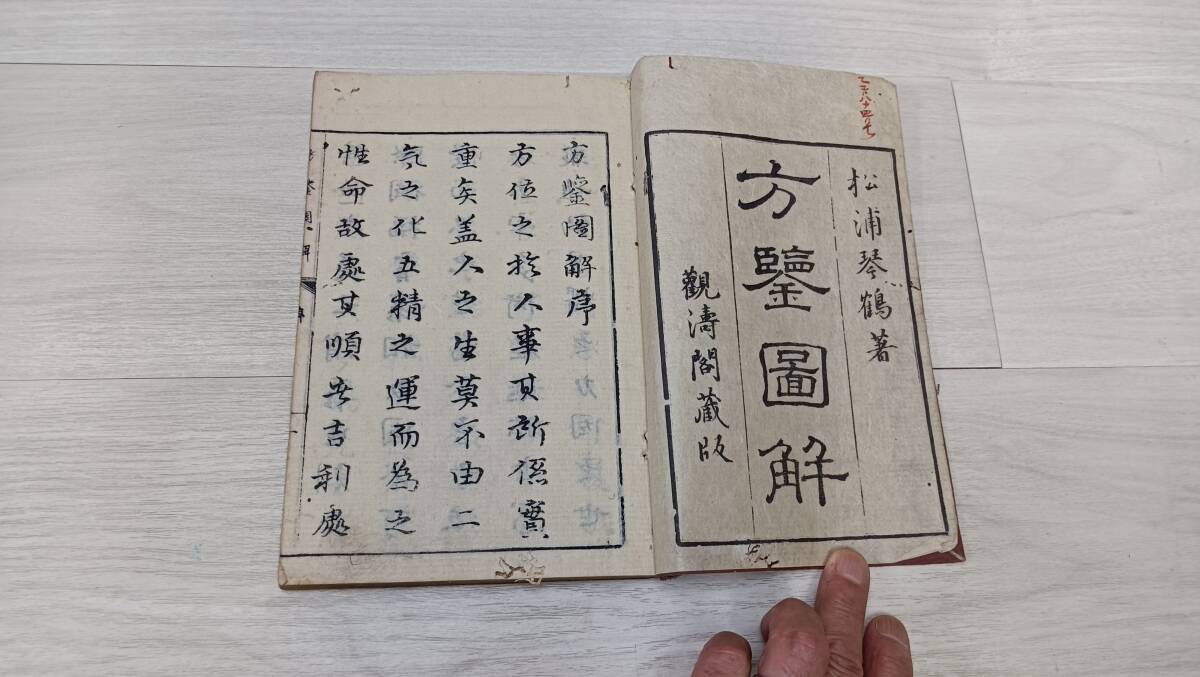 松浦琴鶴著
方鑒圖解
觀濤閣藏版
方鑒圖解序
方位之於人事其所係實
重矣盖人之生莫不由二
氣之化五精之運而為之
性命故處其順者吉利處